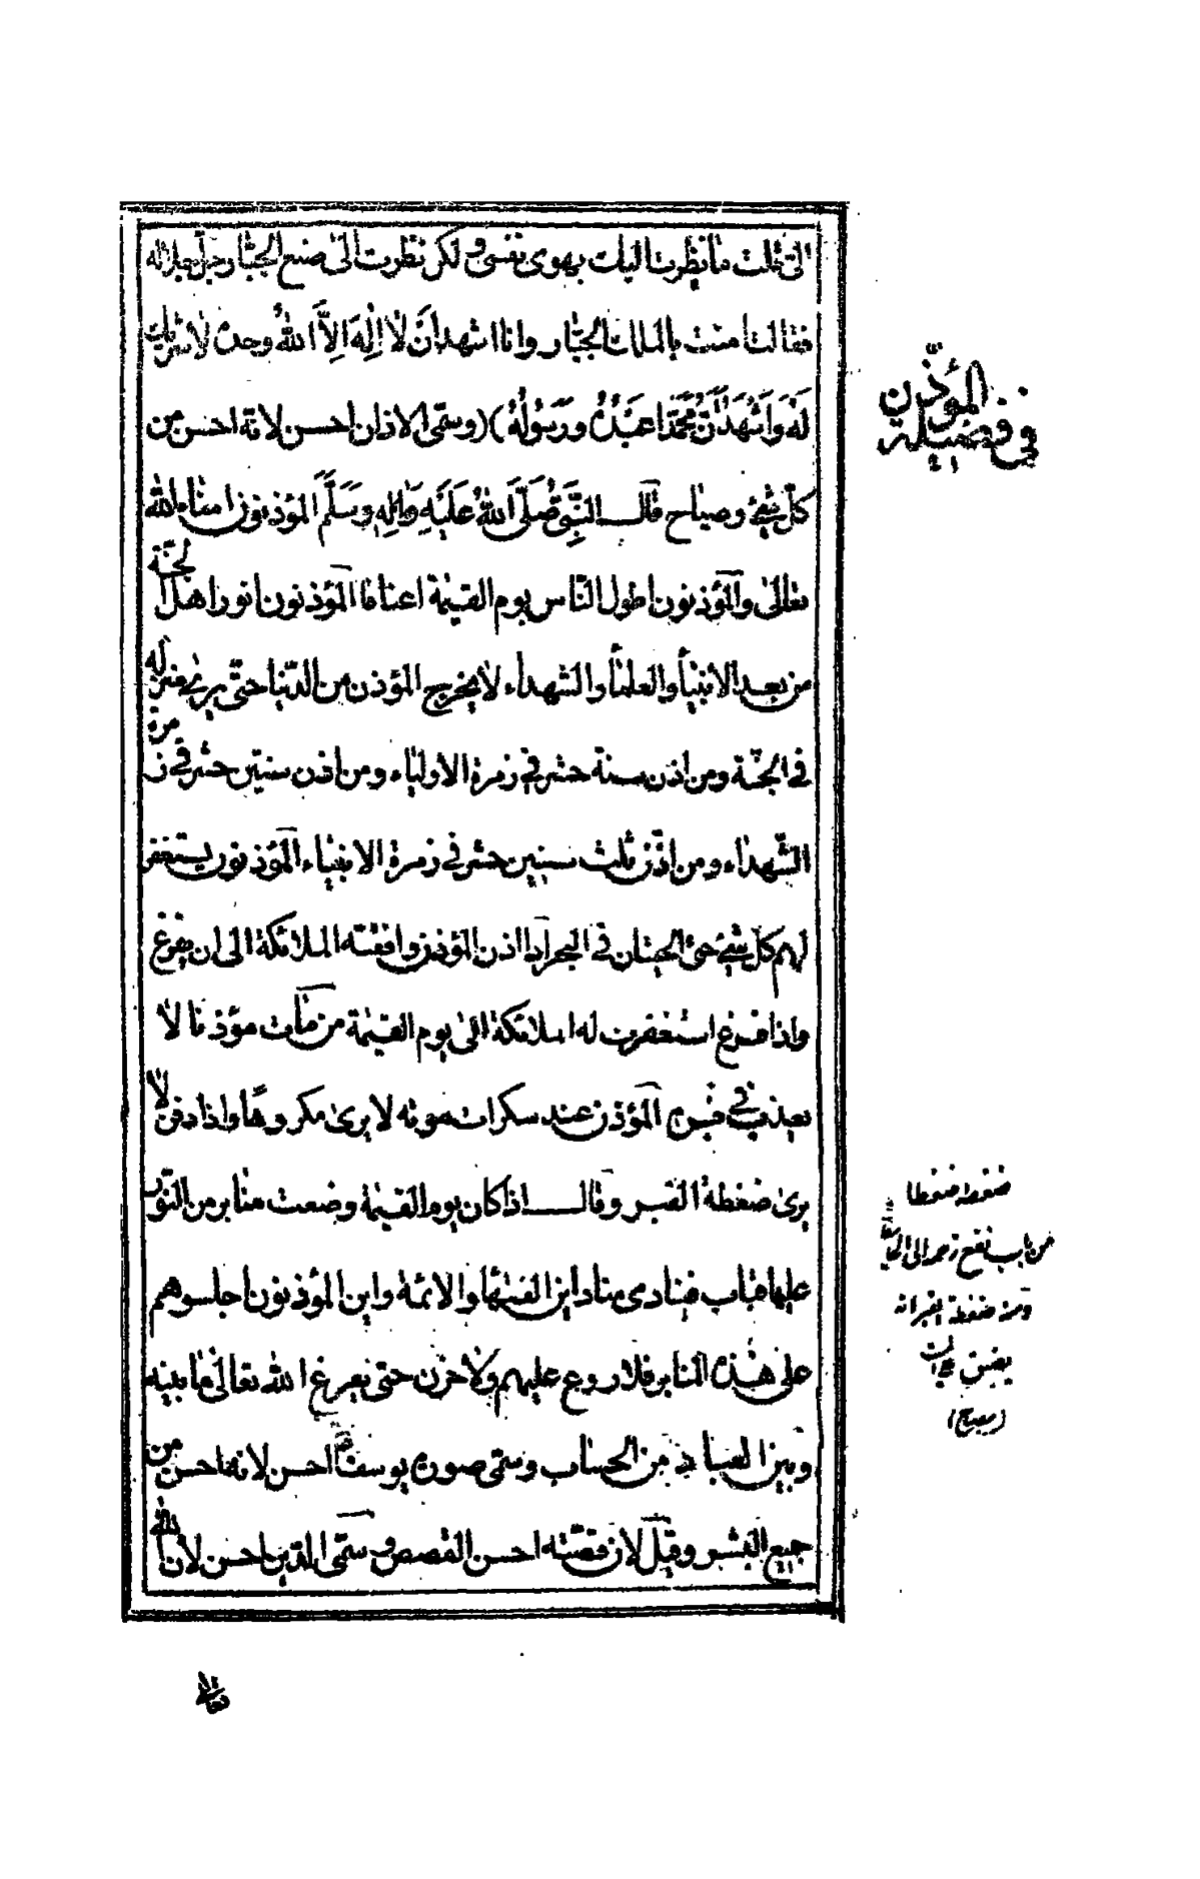 انى قلت ما نظرت اليك بهوى نفسى ولكن نظرت الى صنع الجبار جل جلاله
فقالت امنت بالملك الجبار وانا اشهد ان لا اله الا الله وحده لا شريك
له واشهد ان محمدا عبده ورسوله (وسمى الاذان احسن لانه احسن من
كل شئ وصياح قال النبى صلى الله عليه واله وسلم المؤذنون امناء الله
تعالى والمؤذنون اطول الناس يوم القيمة اعناقا المؤذنون انور اهل الجنة
من بعد الانبياء والعلماء والشهداء لا يخرج المؤذن من الدنيا حتى يرى منزله
فى الجنة ومن اذن سنة حشر فى زمرة الاولياء ومن اذن سنتين حشر فى زمرة
الشهداء ومن اذن ثلث سنين حشر فى زمرة الانبياء المؤذنون يستغفر
لهم كل شئ حتى الحيتان فى البحر اذا اذن المؤذن وافقته الملائكة الى ان يفرغ
واذا فرغ استغفرت له الملائكة الى يوم القيمة من مات مؤذنا لا
يعذب فى قبره المؤذن عند سكرات موته لا يرى مكروها واذا دفن لا
يرى ضغطة القبر وقال اذا كان يوم القيمة وضعت منابر من النور
عليها قباب فينادى مناد اين الفقهاء والائمة واين المؤذنون اجلسوهم
على هذه المنابر فلا روع عليهم ولا حزن حتى يفرغ الله تعالى ما بينه
وبين العباد من الحساب وسمى صورة يوسف احسن لانها احسن من
جميع البشر وقيل لان قصته احسن القصص وسمى الدين احسن لان الله
تعالى
فى فضيلة المؤذن
ضغطه ضغطا
من باب نفع زحمه الى الحائط
ومنه ضغطة القبر لانه
يضيق على الميت
(مصباح)